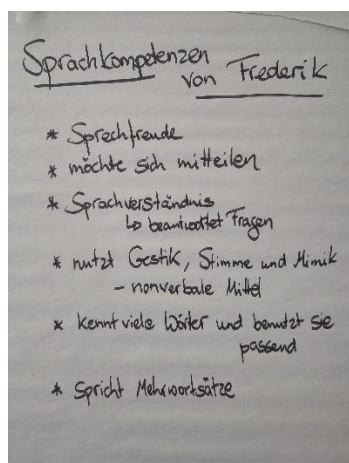 Sprachkompetenzen
von Frederik
* Sprechfreude
* möchte sich mitteilen
* Sprachverständnis
↳ beantwortet Fragen
* nutzt Gestik, Stimme und Mimik
- nonverbale Mittel
* kennt viele Wörter und benutzt sie
passend
* spricht Mehrwortsätze